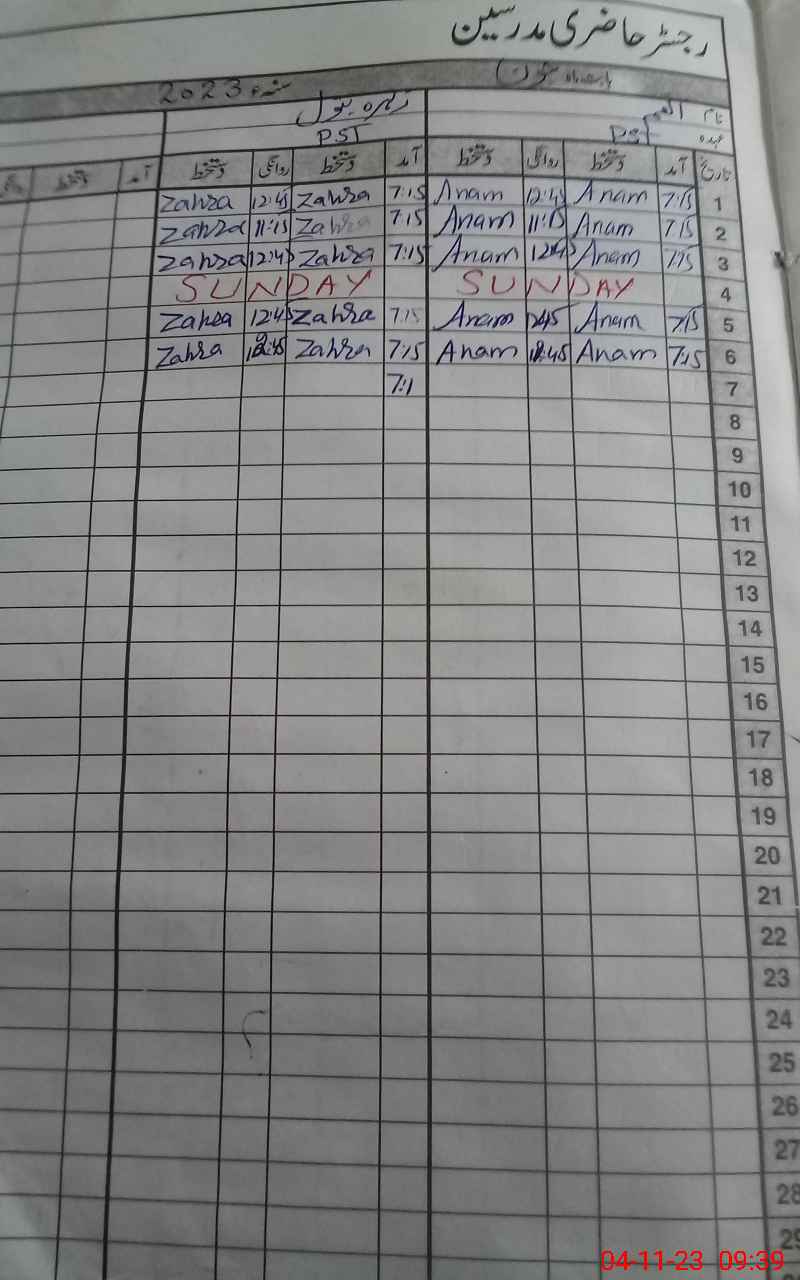 رجسٹر حاضری مدرسین
بابت ماہ جون سنہء 2023
نام انعم زہرہ بتول
عہدہ PST PST
تاریخ آمد دستخط روانگی دستخط آمد دستخط روانگی دستخط آمد دستخط
1 7:15 Anam 12:45 Anam 7:15 Zahra 12:45 Zahra
2 7:15 Anam 11:15 Anam 7:15 Zahra 11:15 Zahra
3 7:15 Anam 12:45 Anam 7:15 Zahra 12:45 Zahra
4 SUNDAY SUNDAY
5 7:15 Anam 12:45 Anam 7:15 Zahra 12:45 Zahra
6 7:15 Anam 12:45 Anam 7:15 Zahra 12:45 Zahra
7 7:1
8
9
10
11
12
13
14
15
16
17
18
19
20
21
22
23
24
25
26
27
28
29
04-11-23 09:39